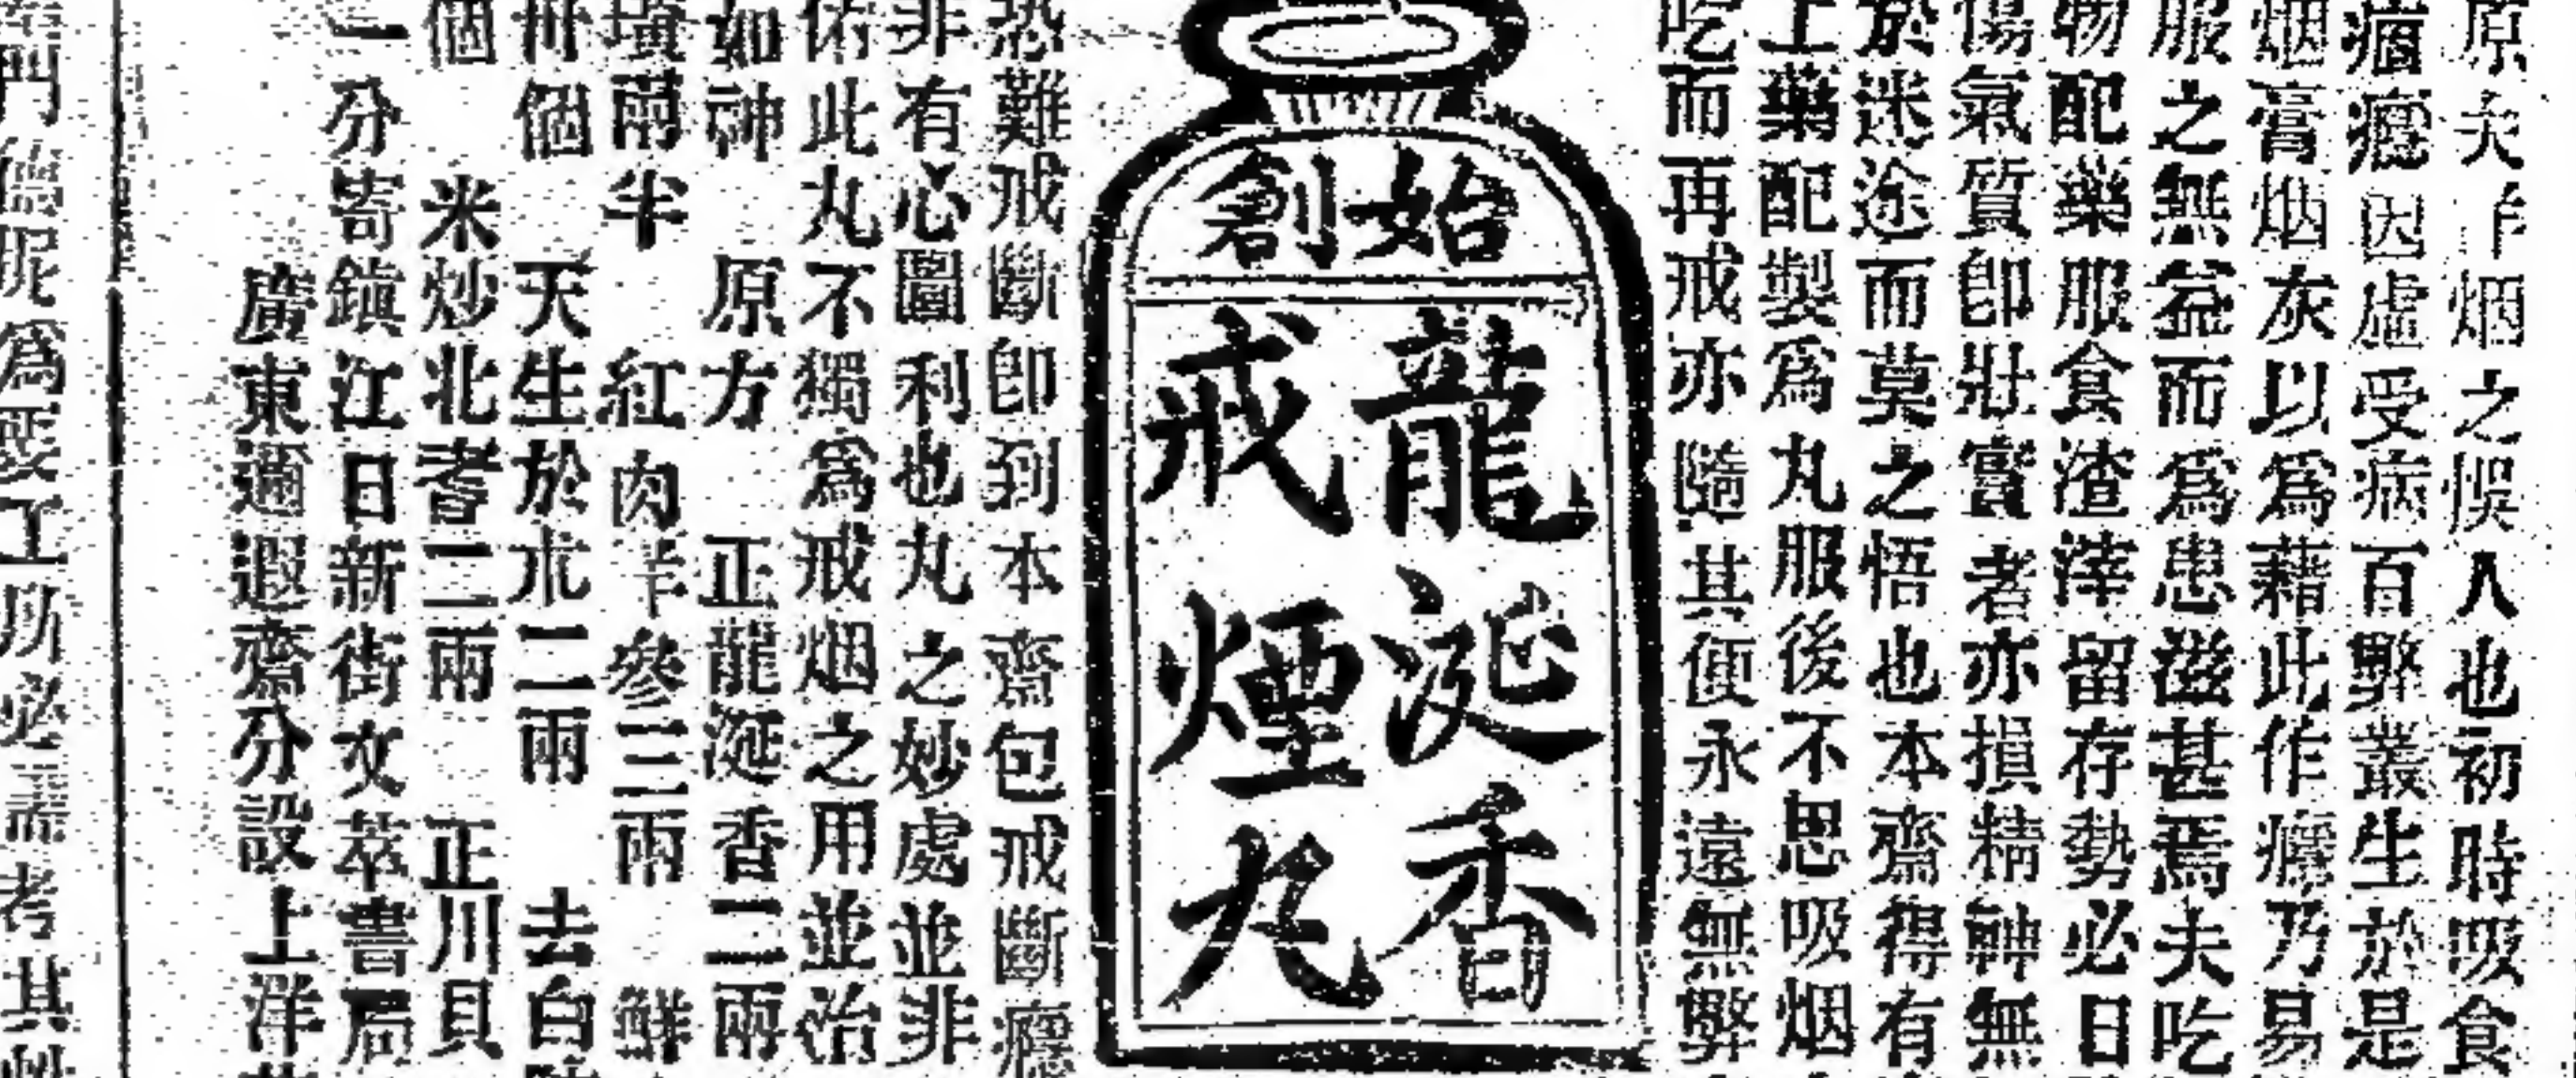 原夫作烟之悞人也初時吸食
癮因虛受病百弊叢生於是
烟膏烟灰以爲藉此作癮乃易
服之無益而爲患滋甚焉夫吃
物配藥服食渣滓留存勢必日
傷氣質卽壯實者亦損精神無
於迷途而莫之悟也本齋得有
上藥配製爲丸服後不思吸烟
吃而再戒亦隨其便永遠無弊
始創
龍涎香
戒煙丸
恐難戒斷卽到本齋包戒斷癮
非有心圖利也丸之妙處並非
此丸不獨爲戒烟之用並治
如神 原方 正龍涎香二兩
兩半 紅肉羊參三兩 鮮
卅個 天生於朮二兩 去白
個 米炒北耆二兩 正川貝
一分寄鎮江日新街文萃書局
廣東邇遐齋分設上洋
門 爲要工 必需考其